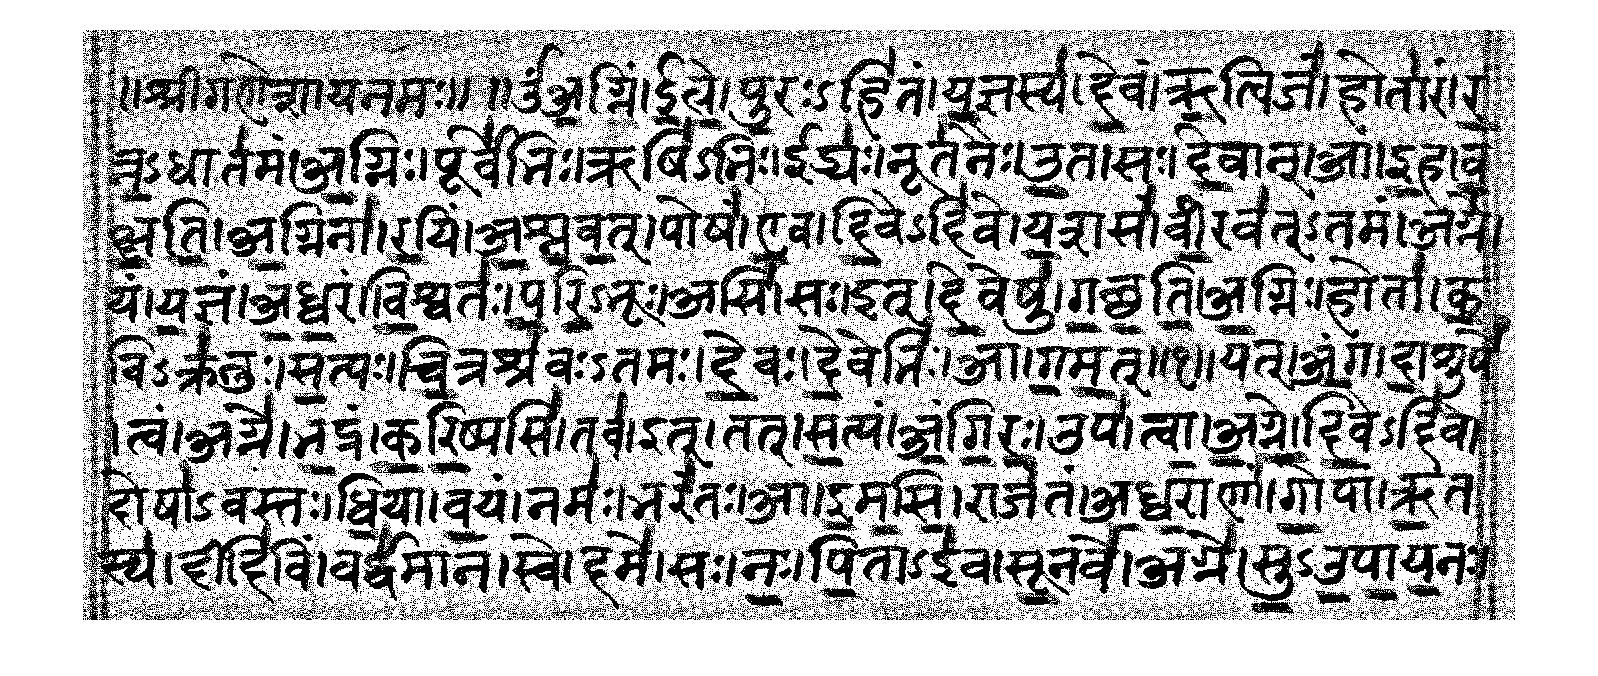 ॥श्रीगणेशायनमः॥ ॥ॐअ॒ग्निं।ई॒ळे॒।पु॒रःऽहि॑तं।य॒ज्ञस्य॑।दे॒वं।ऋ॒त्विजं॑।होता॑रं।र
त्न॒ऽधात॑मं।अ॒ग्निः।पूर्वे॑भिः।ऋषि॑ऽभिः।ईड्यः॑।नूत॑नैः।उ॒त।सः।दे॒वान्।आ।इ॒ह।व॒
क्ष॒ति॒।अ॒ग्निना॑।र॒यिं।अ॒श्न॒व॒त्।पोषं॑।ए॒व।दि॒वेऽदि॑वे।य॒शसं॑।वी॒रव॑त्ऽतमं।अग्ने॑।
यं।य॒ज्ञं।अ॒ध्व॒रं।वि॒श्वतः॑।प॒रि॒ऽभूः।असि॑।सः।इत्।दे॒वेषु॑।ग॒च्छ॒ति॒।अ॒ग्निः।होता॑।क॒
विऽक्र॑तुः।स॒त्यः।चि॒त्रश्र॑वःऽतमः।दे॒वः।दे॒वेभिः॑।आ।ग॒म॒त्॥१॥यत्।अं॒ग।दा॒शुषे॑
।त्वं।अग्ने॑।भ॒द्रं।क॒रि॒ष्यसि॑।तव॑।इत्।तत्।स॒त्यं।अं॒गि॒रः॒।उप॑।त्वा॒।अ॒ग्ने॒।दि॒वेऽदि॑वे।
दोषा॑ऽवस्तः।धि॒या।व॒यं।नमः॑।भरं॑तः।आ।इ॒म॒सि॒।राजं॑तं।अ॒ध्व॒राणां॑।गो॒पां।ऋ॒त
स्य॑।दीदि॑विं।वर्द्ध॑मानं।स्वे।दमे॑।सः।नः॒।पि॒ताऽइ॑व।सू॒नवे॑।अग्ने॑।सु॒ऽउ॒पा॒य॒नः।